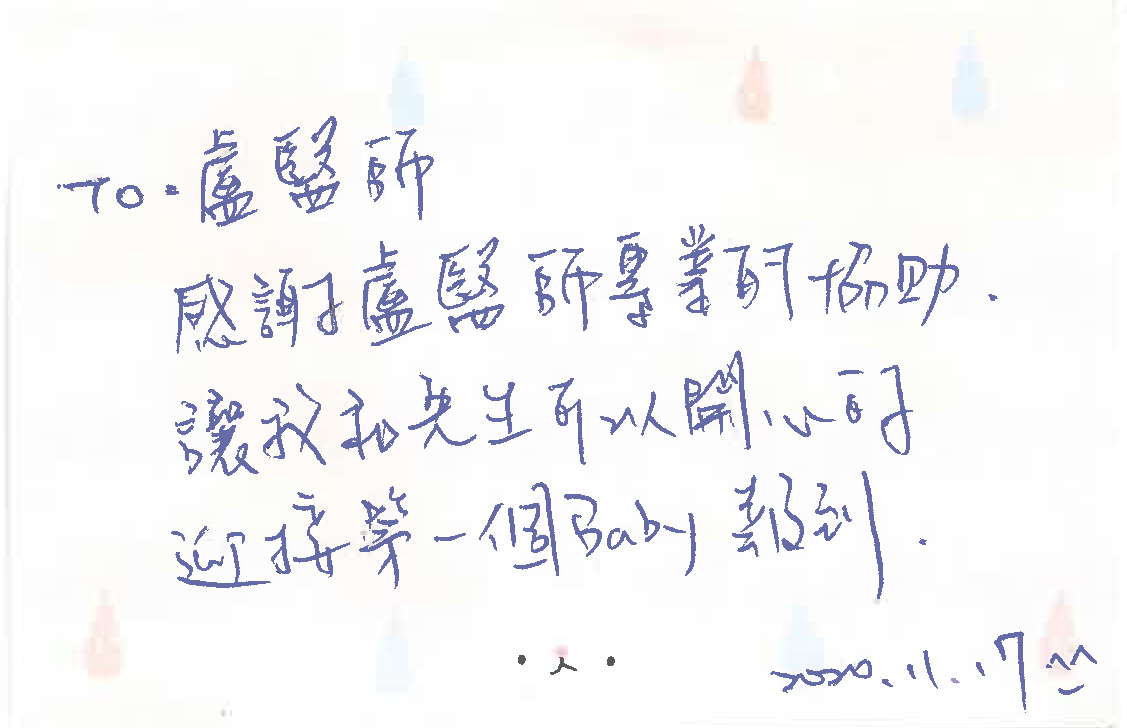 TO:盧醫師
感謝盧醫師專業的協助.
讓我和先生可以開心的
迎接第一個Baby報到.
2020.11.17 ^^